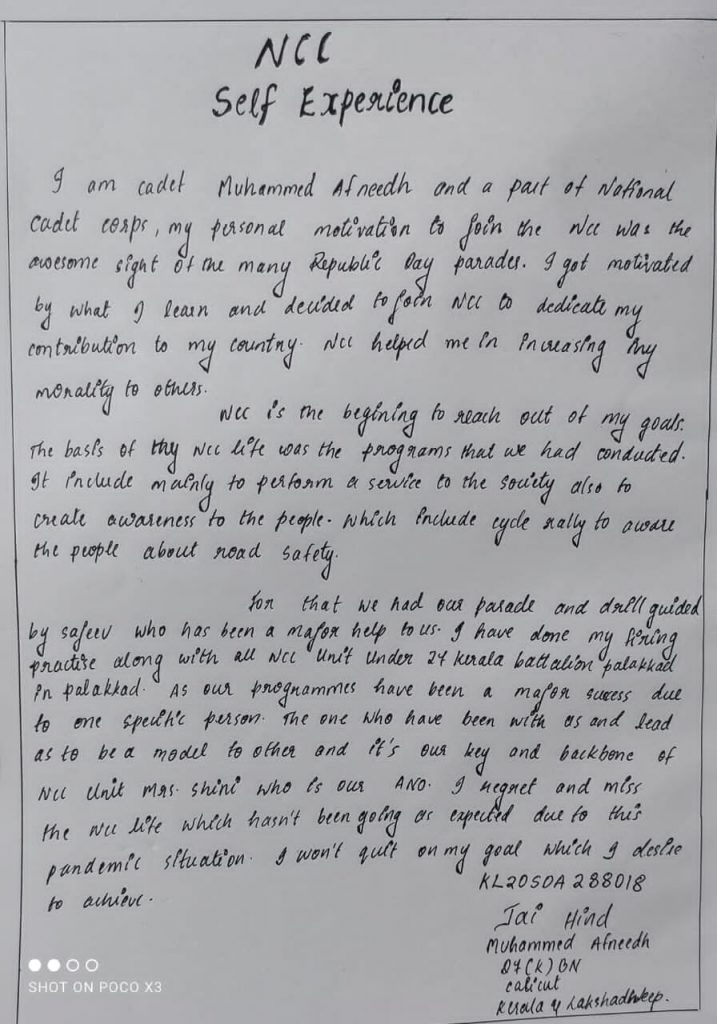 NCC
Self Experience
I am cadet Muhammed Afneedh and a part of National
Cadet corps, my personal motivation to join the NCC was the
awesome sight of the many Republic Day parades. I got motivated
by what I learn and decided to join NCC to dedicate my
contribution to my country. NCC helped me in increasing my
morality to others.
NCC is the begining to reach out of my goals.
The basis of my NCC life was the programs that we had conducted.
It include mainly to perform a service to the society also to
create awareness to the people. which include cycle rally to aware
the people about road safety.
For that we had our parade and drill guided
by safeev who has been a major help to us. I have done my firing
practise along with all NCC Unit Under 27 kerala battalion palakkad
in palakkad. As our programmes have been a major sucess due
to one specific person. The one who have been with us and lead
as to be a model to other and it's our key and backbone of
NCC Unit Mrs. Shini who is our ANO. I regret and miss
the NCC life which hasn't been going as expected due to this
pandemic situation. I won't quit on my goal which I desire
to achieve.
KL20SDA 288018
Jai Hind
Muhammed Afneedh
27(K) BN
calicut
Kerala & Lakshadweep.
SHOT ON POCO X3